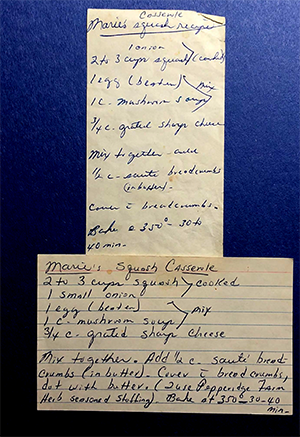 Casserole
Marie's squash recipe
1 onion
2 to 3 cups squash (cooked)
1 egg (beaten)
mix
1 c. mushroom soup
3/4 c. grated sharp cheese
Mix together add
1/2 c. sauté breadcrumbs
(in butter).
Cover c̄ breadcrumbs.
Bake @ 350° 30 to
40 min.
Marie's Squash Casserole
2 to 3 cups squash cooked
1 small onion
1 egg (beaten)
mix
1 c. mushroom soup
3/4 c. grated sharp cheese
Mix together. Add 1/2 c. sauté bread-
crumbs (in butter). Cover c̄ bread crumbs,
dot with butter. (I use Pepperidge Farm
Herb seasoned Stuffing). Bake at 350° 30-40
min.